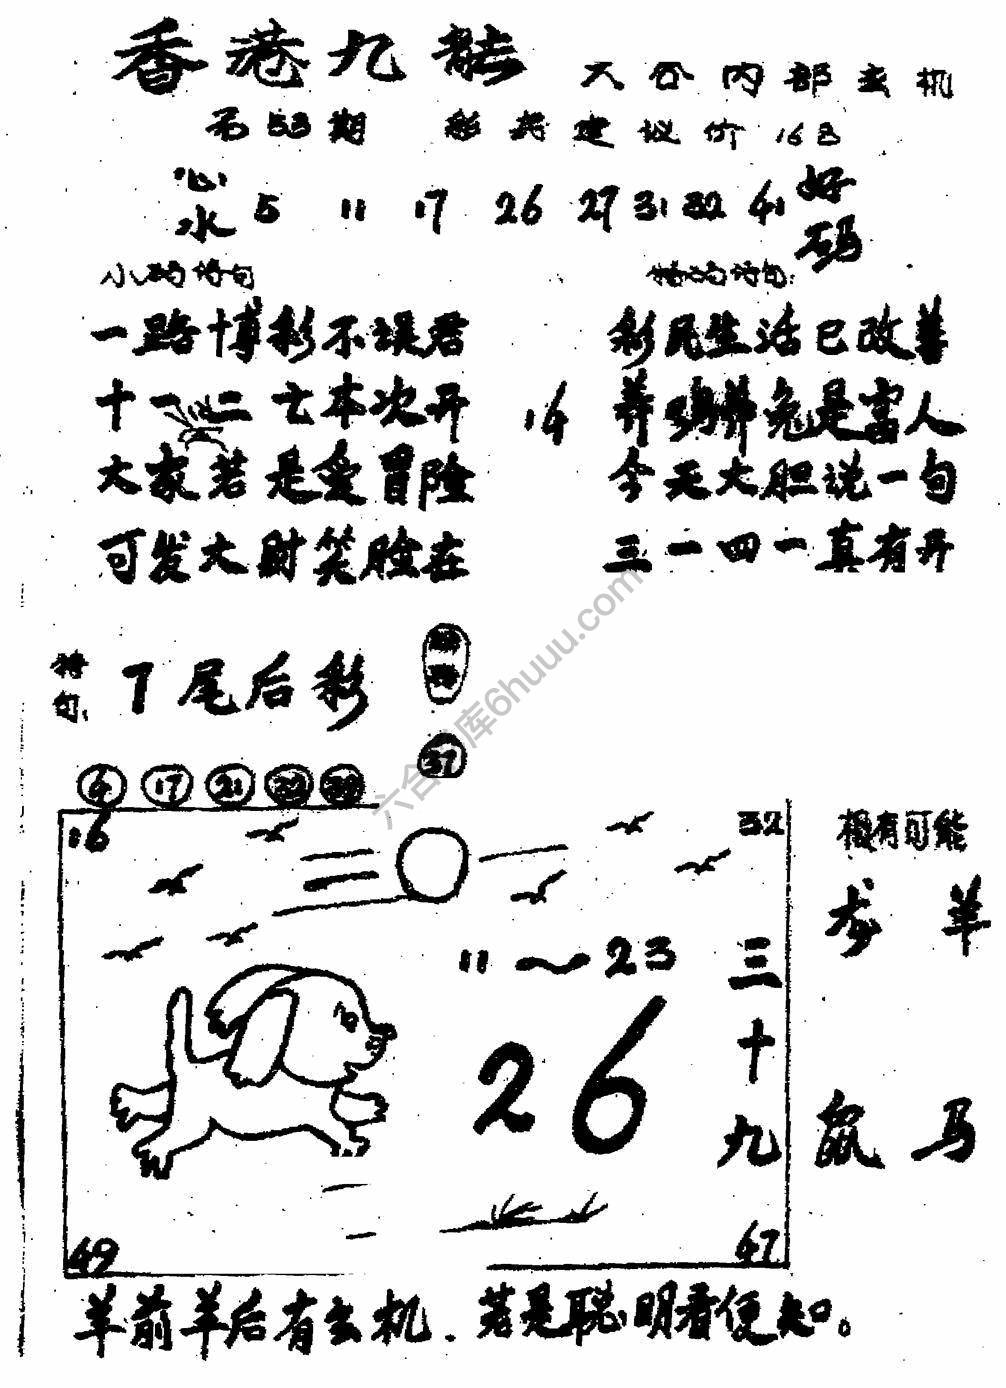 香港九龍 六合内部玄机
53期 彩民建议价16
心水 5 11 17 26 27 31 32 41 好码
小码诗句
特码诗句:
一路博彩不误君
十一二七本次开
大家若是爱冒险
可发大财笑脸在
14
彩民生活已改善
养鸡养兔是富人
今天大胆说一句
三一四一真有开
特句: 7尾后彩
37
4 17 21
16
32
11～23
26
三十九
49
47
极有可能
龙 羊
鼠 马
羊前羊后有玄机.若是聪明看便知。
六合 库6huuu.com